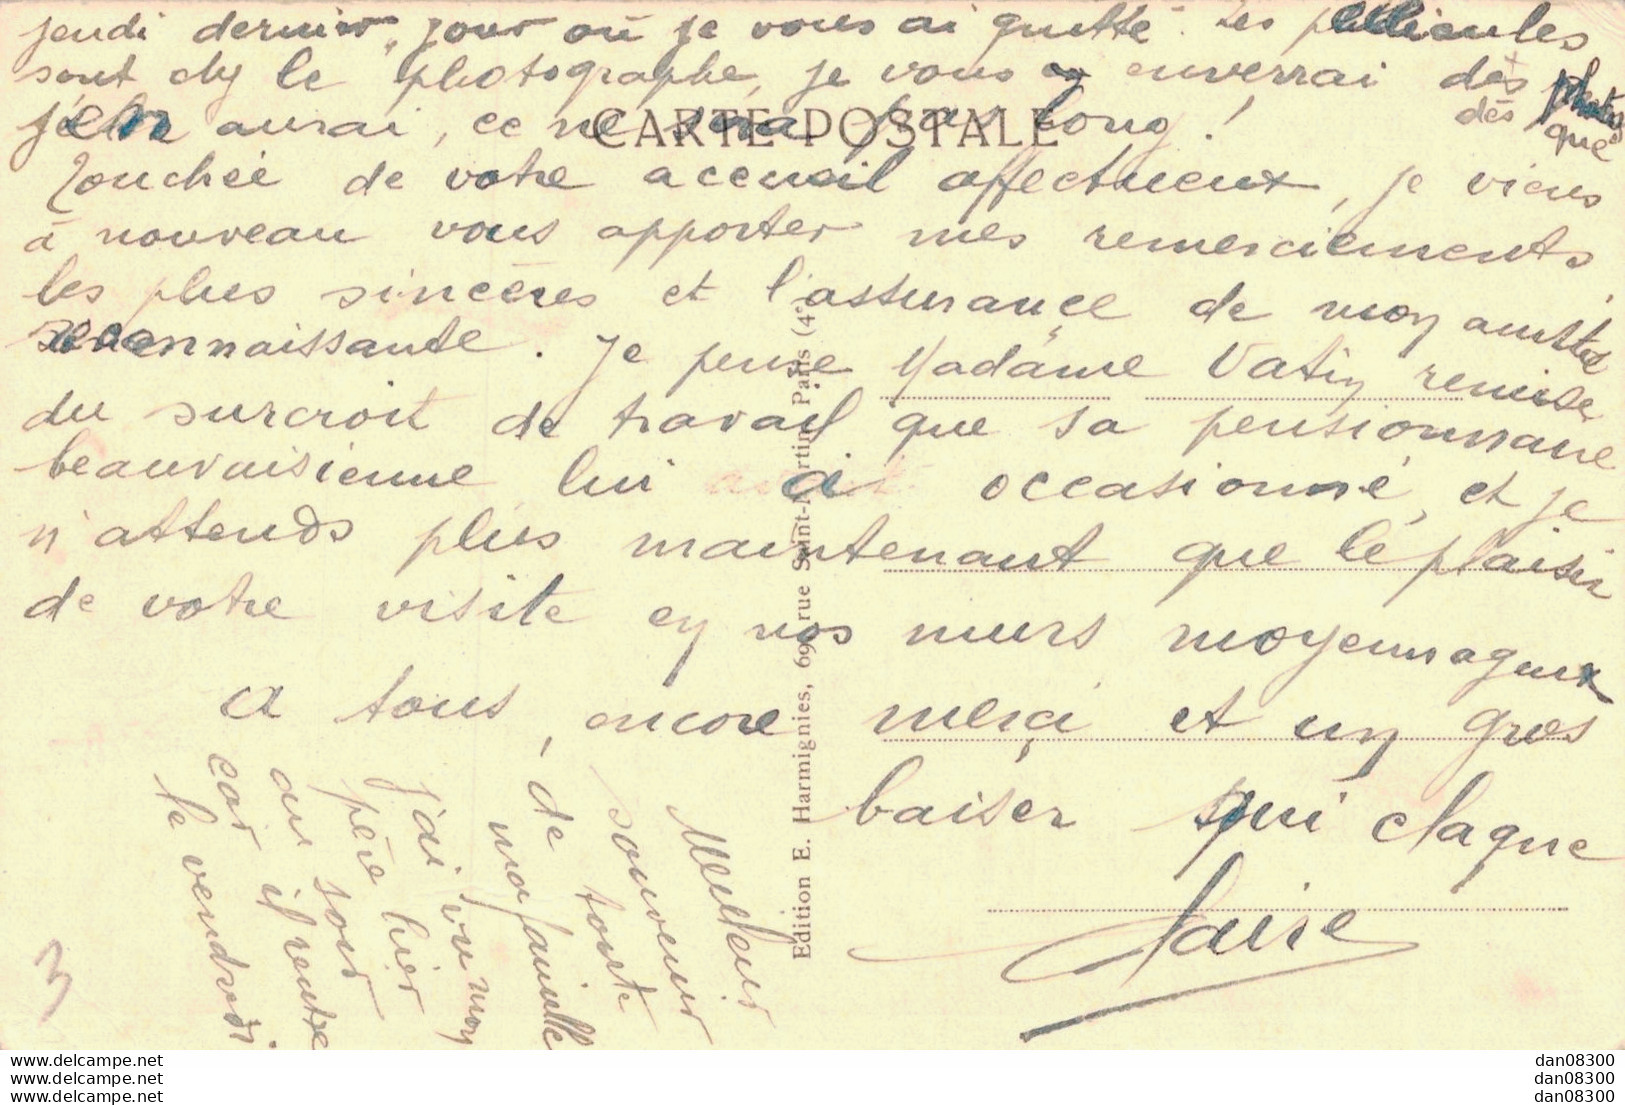 jeudi dernier, jour où je vous ai quitté. Les pellicules
sont chez le photographe, je vous en enverrai dès
photos
dès que
j'en aurai, ce ne sera pas long !
CARTE POSTALE
Touchée de votre accueil affectueux, je viens
à nouveau vous apporter mes remerciements
les plus sincères et l'assurance de mon amitié
reconnaissante. Je pense Madame Vatin remise
du surcroit de travail que sa pensionnaire
beauvaisienne lui a occasionné, et je
n'attends plus maintenant que le plaisir
de votre visite en nos murs moyennageux
A tous, encore merci et un gros
baiser qui claque
Claire
Meilleur
souvenir
de toute
ma famille
j'ai vu mon
père hier
au soir
car il rentre
le vendredi
3
Edition E. Harmignies, 69, rue Saint-Martin, Paris (4e)
delcampe.net
delcampe.net
delcampe.net
dan08300
dan08300
dan08300